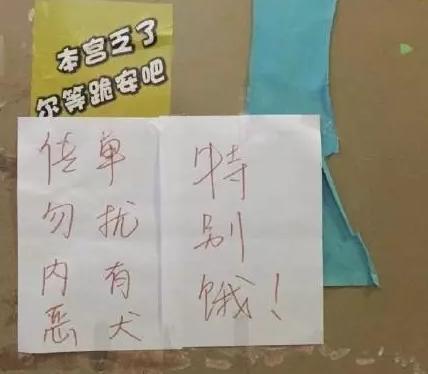 本宫乏了
尔等跪安吧
传单
勿扰
内有
恶犬
特别饿！